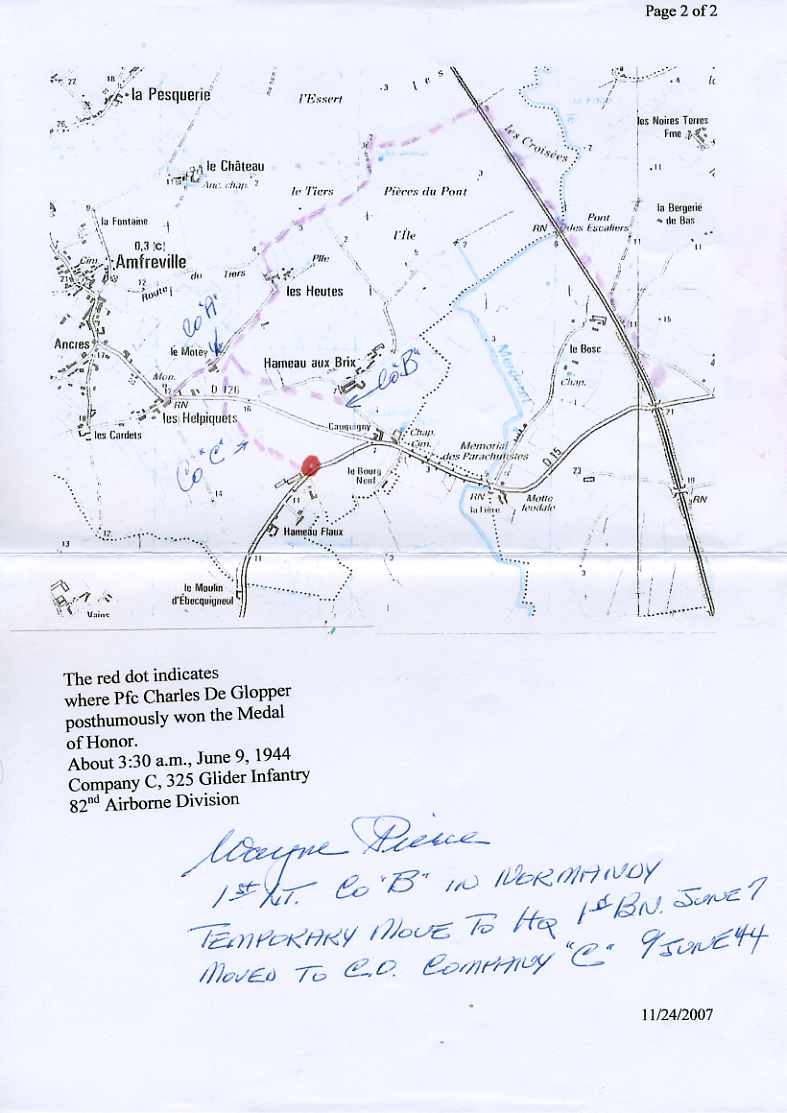 Page 2 of 2
la Pesquerie
l'Essert
les
les Noires Terres
Fme
le Château
Anc. chap.
les Croisées
le Tiers
Pièces du Pont
la Bergerie
de Bas
la Fontaine
l'Île
RN
Pont
des Escaliers
0,3 (C)
Cim.
Amfreville
Route du Tiers
Plle
les Heutes
Co "A"
Ancres
le Motey
Hameau aux Brix
Co "B"
le Bosc
Chap.
Merderet
Mon.
D 126
RN
les Helpiquets
16
Cauquigny
Chap.
Cim.
les Cardets
Co "C"
Mémorial
des Parachutistes
D 15
le Bourg
Neuf
23
RN
la Fière
Motte
féodale
19
RN
14
11
Hameau Flaux
13
12
11
3
le Moulin
d'Ébecquigneul
Vains
The red dot indicates
where Pfc Charles De Glopper
posthumously won the Medal
of Honor.
About 3:30 a.m., June 9, 1944
Company C, 325 Glider Infantry
82nd Airborne Division
Wayne Pierce
1st LT. Co "B" IN NORMANDY
TEMPORARY MOVE TO HQ 1st BN. JUNE 7
MOVED TO C.O. COMPANY "C" 9 JUNE 44
11/24/2007